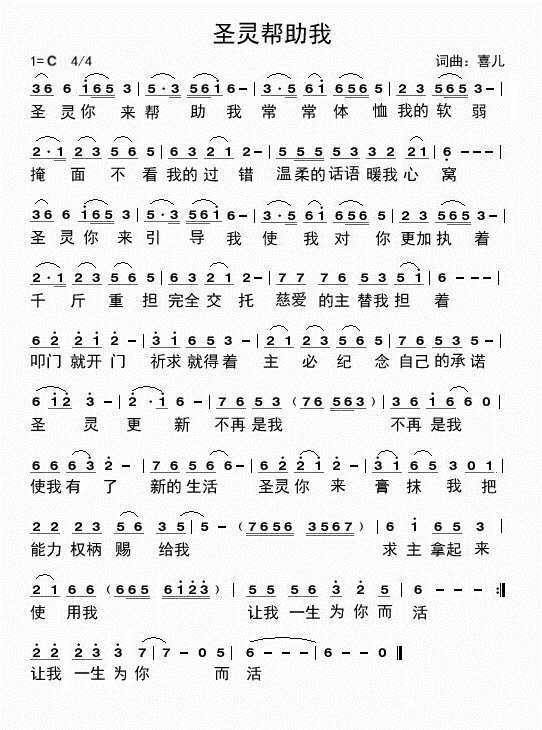 圣灵帮助我
1=C 4/4 词曲：喜儿
36 6 i65 3 | 5·3 561 6- | 3·5 6i 6565 | 23 5653- |
圣 灵你 来帮 助我 常 常体 恤我的软 弱
2·1 23 56 5 | 63 21 2- | 5 5 5 5 3 32 21 | 6 - - - |
掩 面 不 看我的过 错 温柔的话语暖我心 窝
36 6 i65 3 | 5·3 561 6- | 3·5 6i 6565 | 23 5653- |
圣灵你 来引 导 我 使 我 对 你 更加执 着
2·1 23 56 5 | 63 21 2- | 77 76 53 51 | 6 - - - |
千 斤 重 担完全交 托 慈爱的主替我担 着
62 21 2- | 3i 65 3- | 21 23 56 5 | 76 53 5- |
叩门 就开 门 祈求就得着 主 必 纪 念 自己的承诺
6 i2 3 - | 2·1 6 - | 76 53（76 563）| 36 i6 6 0 |
圣 灵 更 新 不再是我 不再是我
66 63 2- | 76 56 6- | 62 21 2- | 3i 65 3 01 |
使我有 了 新的生活 圣灵你 来 膏 抹 我 把
22 23 56 35 | 5 -（7656 3567）| 6 i 65 3 |
能力权柄 赐 给我 求主拿起来
21 66（665 6i23）| 55 56 3 2 5 | 6 - - - :||
使 用我 让我 一生 为 你 而 活
22 23 3 7 | 7 - 0 5 | 6 - - - | 6 - 0 ||
让我 一生 为 你 而 活